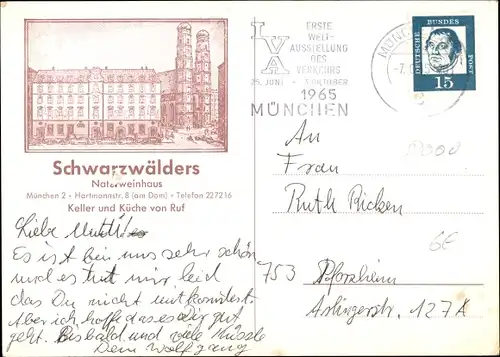 Schwarzwälders
Naturweinhaus
München 2 • Hartmannstr. 8 (am Dom) • Telefon 227216
Keller und Küche von Ruf
Liebe Mutti!
Es ist bei uns sehr schön
und es tut mir leid
das Du nicht mitkonntest.
Aber ich hoffe das es dir gut
geht. Bis bald und viele Küsse
Dein Wolfgang
IVA
ERSTE
WELT-
AUSSTELLUNG
DES
VERKEHRS
25. JUNI - 3. OKTOBER
1965
MÜNCHEN
DEUTSCHE BUNDESPOST
15
An
Frau
Ruth Ricken
753 Pforzheim
Arlingerstr. 127A
6E